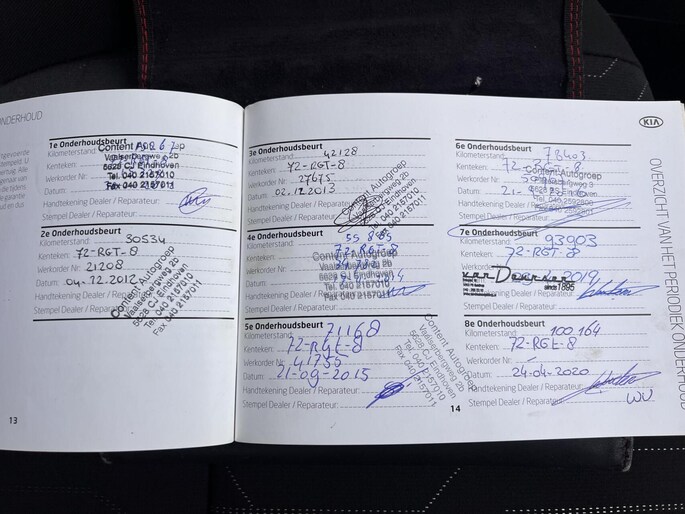 ONDERHOUD
1e Onderhoudsbeurt
Kilometerstand:
Kenteken:
Werkorder Nr.
Datum:
Content Autogroep
Vaalserbergweg 2b
5628 CJ Eindhoven
Tel. 040 2157010
Fax 040 2157011
Handtekening Dealer / Reparateur:
Stempel Dealer / Reparateur:
2e Onderhoudsbeurt
Kilometerstand: 30534
Kenteken: 72-RGT-8
Werkorder Nr. 21208
Datum: 04-12-2012
Handtekening Dealer / Reparateur:
Stempel Dealer / Reparateur:
Content Autogroep
Vaalserbergweg 2b
5628 CJ Eindhoven
Tel. 040 2157010
Fax 040 2157011
13
3e Onderhoudsbeurt
Kilometerstand: 42128
Kenteken: 72-RGT-8
Werkorder Nr. 27675
Datum: 02.12.2013
Handtekening Dealer / Reparateur:
Stempel Dealer / Reparateur:
Content Autogroep
Vaalserbergweg 2b
5628 CJ Eindhoven
Tel. 040 2157010
Fax 040 2157011
4e Onderhoudsbeurt
Kilometerstand:
Kenteken: 72-RGT-8
Werkorder Nr.
Datum:
Handtekening Dealer / Reparateur:
Stempel Dealer / Reparateur:
Content Autogroep
Vaalserbergweg 2b
5628 CJ Eindhoven
Tel. 040 2157010
Fax 040 2157011
5e Onderhoudsbeurt
Kilometerstand: 71168
Kenteken: 72-RGT-8
Werkorder Nr. 41755
Datum: 21-09-2015
Handtekening Dealer / Reparateur:
Stempel Dealer / Reparateur:
Content Autogroep
Vaalserbergweg 2b
5628 CJ Eindhoven
Tel. 040 2157010
Fax 040 2157011
14
6e Onderhoudsbeurt
Kilometerstand: 78403
Kenteken: 72-RGT-8
Werkorder Nr.
Datum: 21-
Handtekening Dealer / Reparateur:
Stempel Dealer / Reparateur:
Content Autogroep
7e Onderhoudsbeurt
Kilometerstand: 93903
Kenteken: 72-RGT-8
Werkorder Nr.
Datum: 2019
Van Deursen
sinds 1895
Handtekening Dealer / Reparateur:
Stempel Dealer / Reparateur:
8e Onderhoudsbeurt
Kilometerstand: 100164
Kenteken: 72-RGT-8
Werkorder Nr.
Datum: 24-04-2020
Handtekening Dealer / Reparateur:
Stempel Dealer / Reparateur:
WU
KIA
OVERZICHT VAN HET PERIODIEK ONDERHOUD